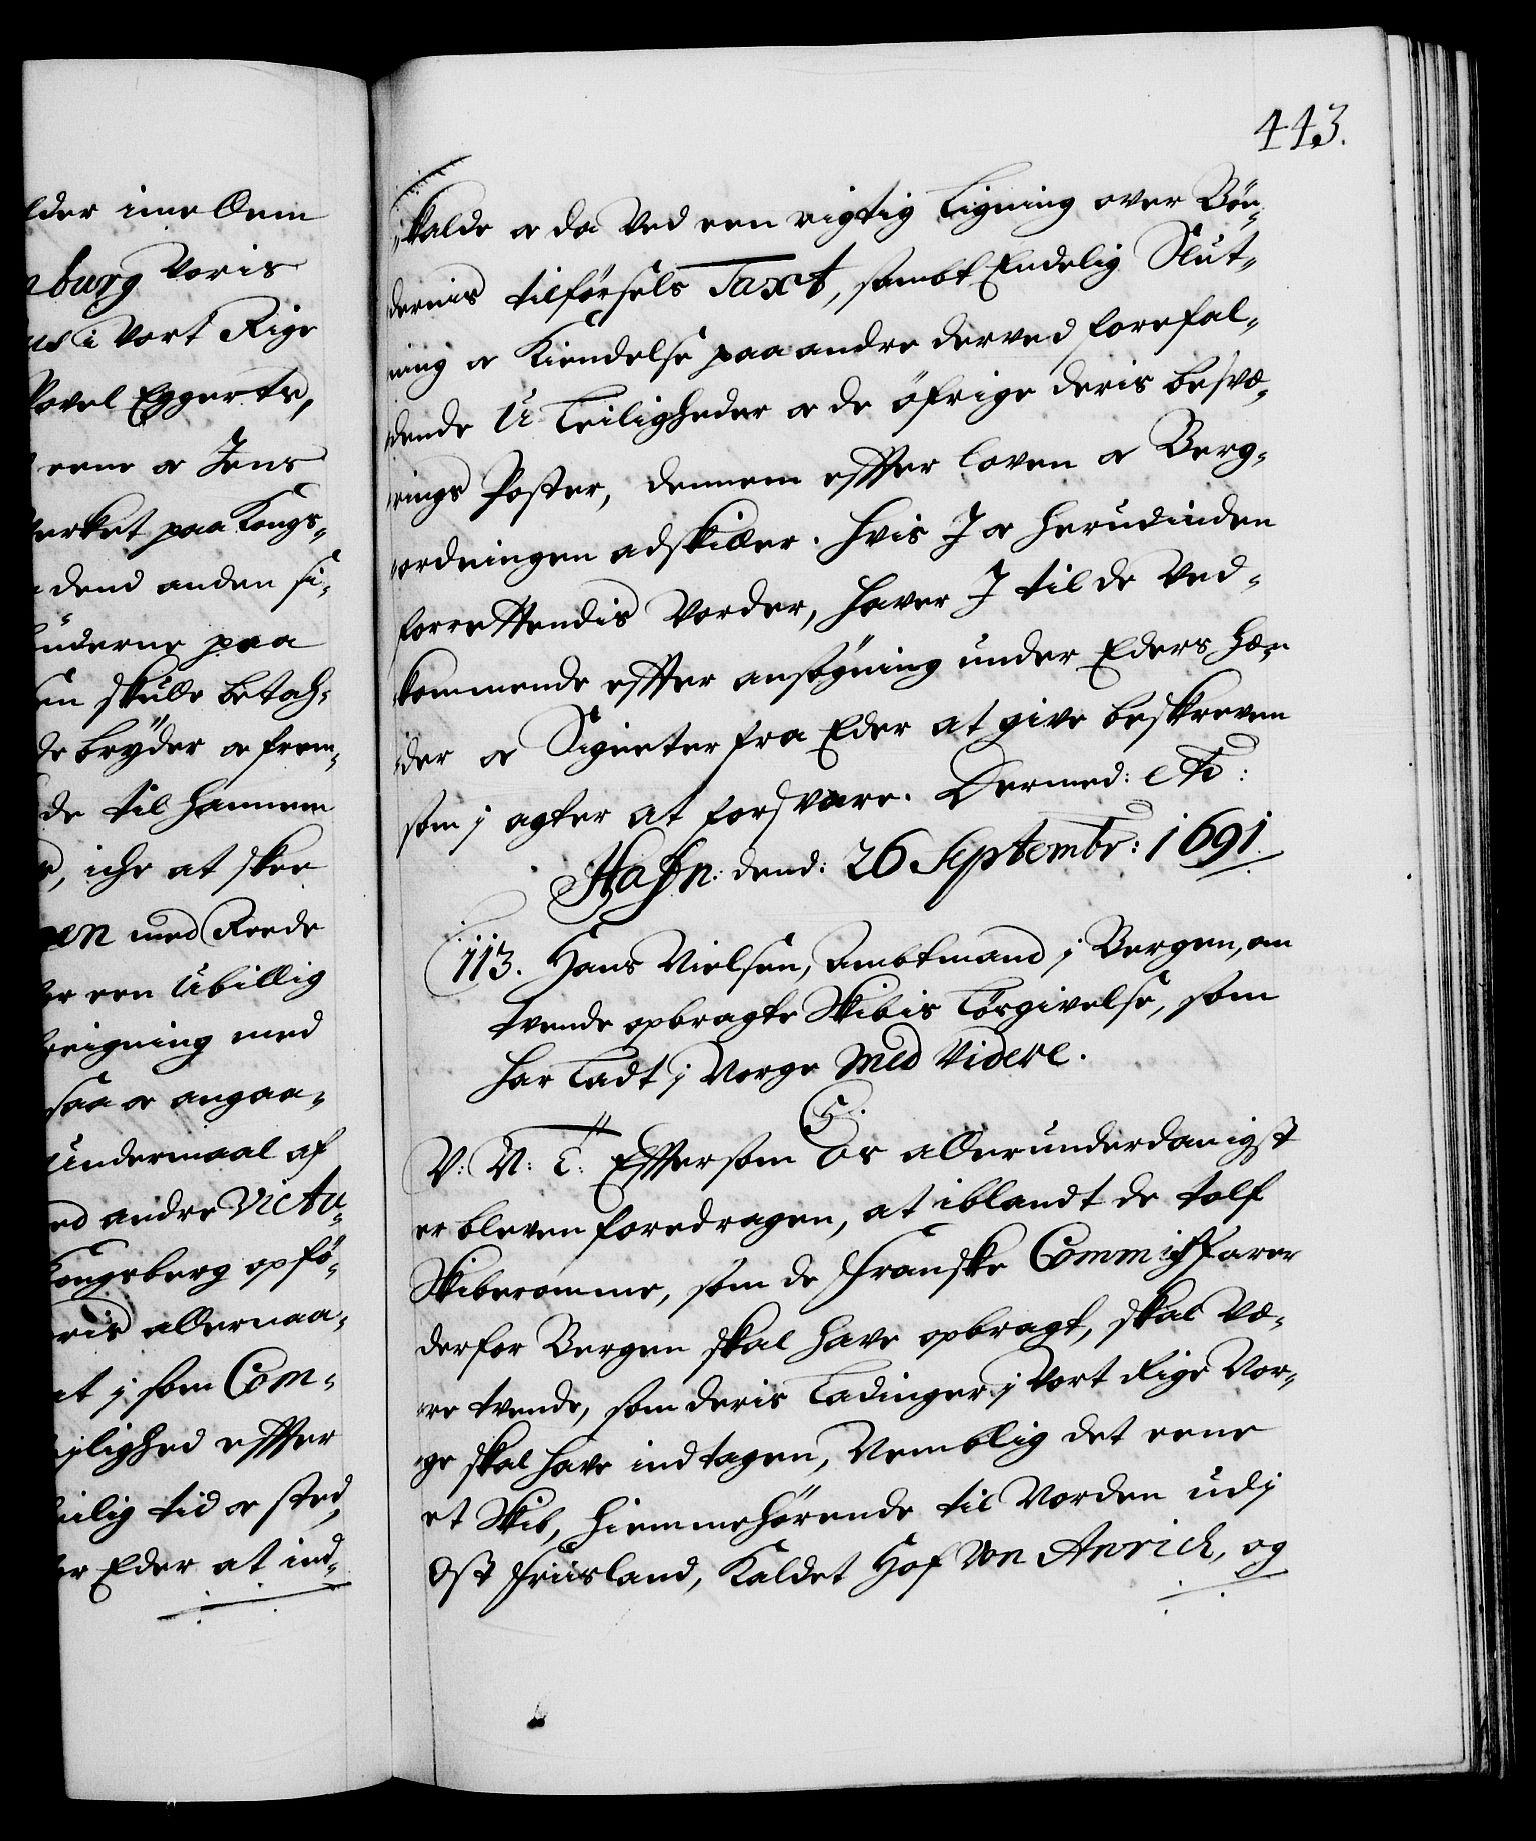 lder imellem
nburg Voris
us i Vort Rige
Povel Eggerts,
eene og Jens
Verket paa Kongs-
dend anden si-
uderne paa
en skulle betah-
de bryder og frem-
de til hannem
, iche at skee
en med Reede
er een Ubillig
reigning med
saa og angaa-
Undermaal af
ed andre Victu-
Kongsberg opfö-
ris allernaa-
at j som Com-
jlighed effter
eilig tid og sted,
er Eder at ind-
443.
kalde og da Ved een rigtig Ligning over Bön-
dernis tilförsels Taxt, sambt Endelig Slut-
ning og Kiendelse paa andre derved forefal-
dende U-Leiligheder og de öfrige deris besvæ-
rings Poster, dennem effter loven og Berg-
ordningen adskiller. Hvis J og herudinden
forrettendis Vorder, haver J til de Ved-
kommende effter ansögning under Eders Hæn-
der og Signeter fra Eder at give beskreven
som j agter at forsvare. Dermed: etc:
Hafn: dend: 26 Septembr: 1691.
113. Hans Nielsen, Ambtmand j Bergen, an
tvende opbragte Skibis Lösgivelse, som
har Ladt j Norge med videre.
C5.
V: N: T: Effersom Os allerunderdanigst
er bleven foredragen, at iblandt de tolf
Skiberomme, som de Franske Commissfarer
derfor Bergen skal have opbragt, skal væ-
re tvende, som deris Ladinger j Vort Rige Nor-
ge skal have indtagen, Nemblig det eene
et Skib, hiemmehörende til Norden udj
Ost Friisland, Kaldet Hof von Anrich, og